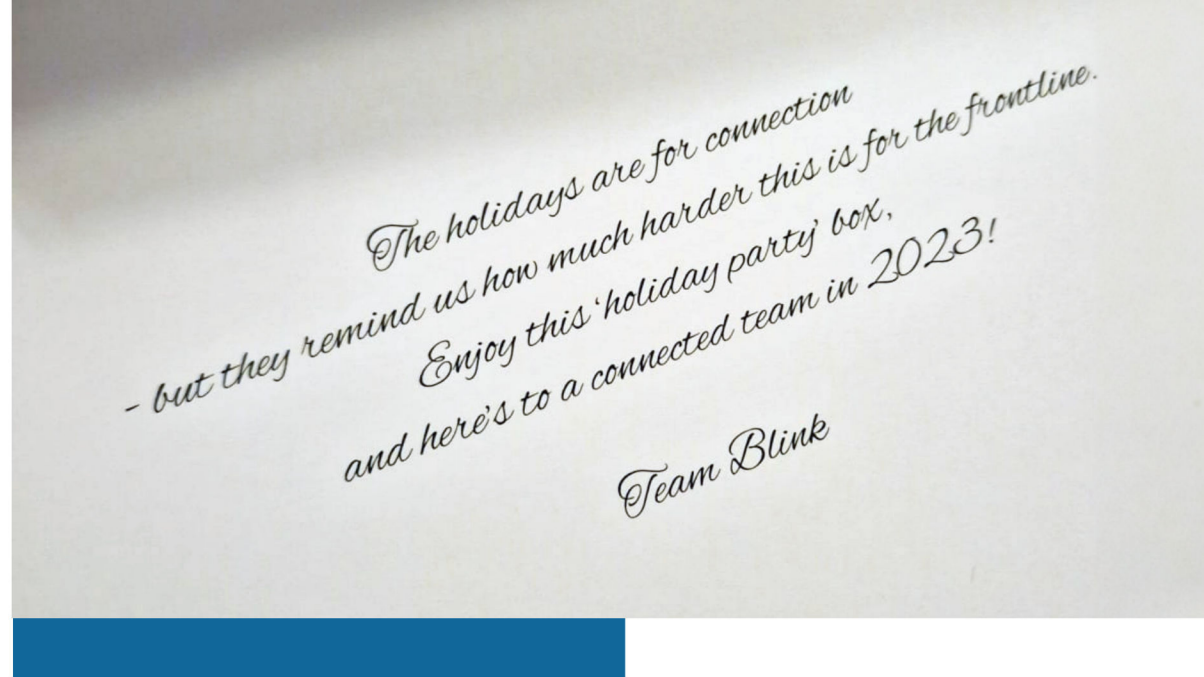 The holidays are for connection
- but they remind us how much harder this is for the frontline.
Enjoy this 'holiday party' box,
and here's to a connected team in 2023!
Team Blink